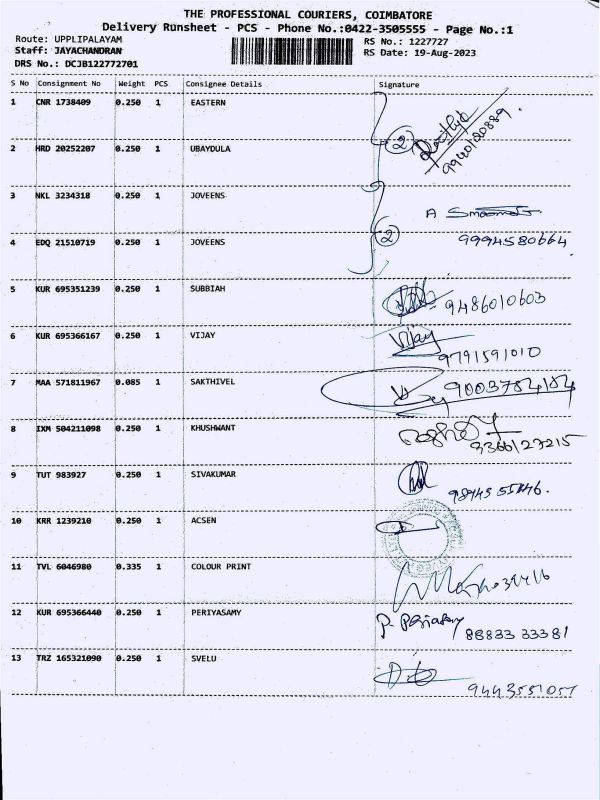 THE PROFESSIONAL COURIERS, COIMBATORE
Delivery Runsheet - PCS - Phone No.:0422-3505555 - Page No.:1
Route: UPPLIPALAYAM RS No.: 1227727
Staff: JAYACHANDRAN RS Date: 19-Aug-2023
DRS No.: DCJB122772701
S No Consignment No Weight PCS Consignee Details Signature
1 CNR 1738409 0.250 1 EASTERN
2 HRD 20252207 0.250 1 UBAYDULA 2
3 NKL 3234318 0.250 1 JOVEENS
4 EDQ 21510719 0.250 1 JOVEENS 2 9994580664
5 KUR 695351239 0.250 1 SUBBIAH 9486010603
6 KUR 695366167 0.250 1 VIJAY Vijay
9791591010
7 MAA 571811967 0.085 1 SAKTHIVEL 9003784184
8 IXM 504211098 0.250 1 KHUSHWANT
9366127215
9 TUT 983927 0.250 1 SIVAKUMAR
10 KRR 1239210 0.250 1 ACSEN
11 TVL 6046980 0.335 1 COLOUR PRINT
12 KUR 695366440 0.250 1 PERIYASAMY
88833 33381
13 TRZ 165321090 0.250 1 SVELU
9443551057